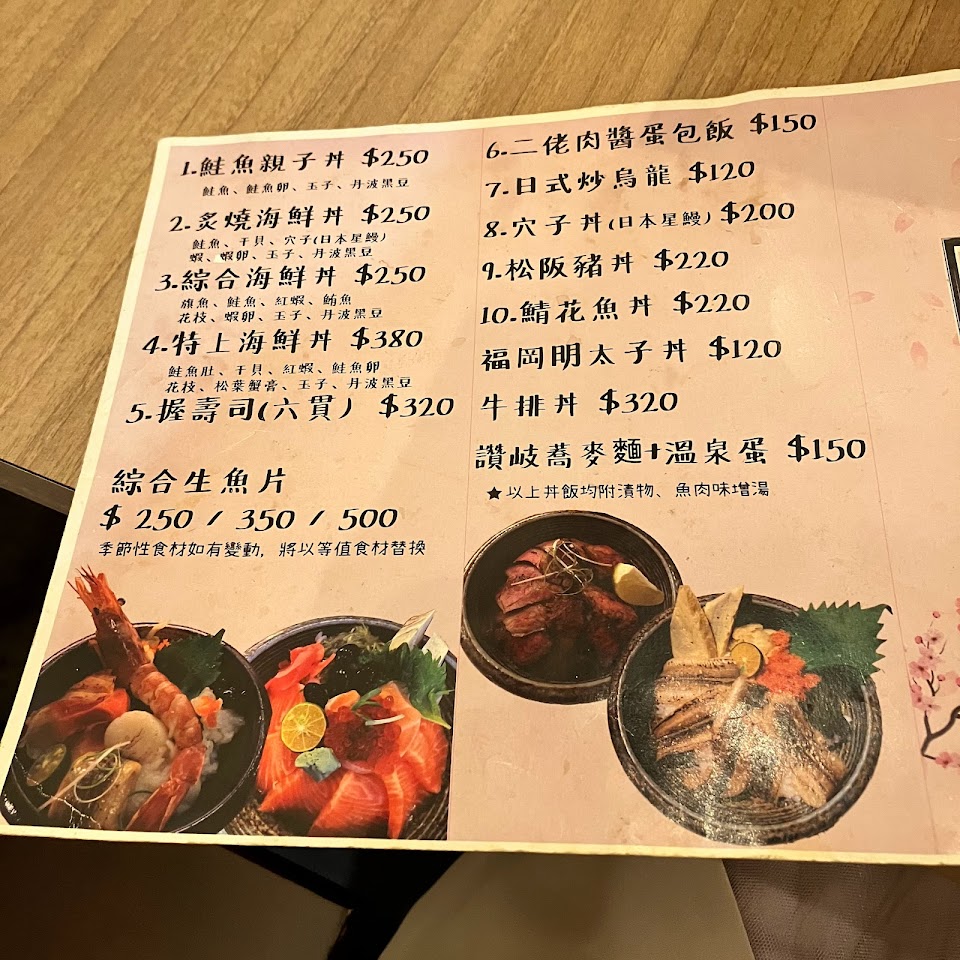 1.鮭魚親子丼 $250
鮭魚、鮭魚卵、玉子、丹波黑豆
2.炙燒海鮮丼 $250
鮭魚、干貝、穴子(日本星鰻)
蝦、蝦卵、玉子、丹波黑豆
3.綜合海鮮丼 $250
旗魚、鮭魚、紅蝦、鮪魚
花枝、蝦卵、玉子、丹波黑豆
4.特上海鮮丼 $380
鮭魚肚、干貝、紅蝦、鮭魚卵
花枝、松葉蟹膏、玉子、丹波黑豆
5.握壽司(六貫) $320
綜合生魚片
$ 250 / 350 / 500
季節性食材如有變動，將以等值食材替換
6.二佬肉醬蛋包飯 $150
7.日式炒烏龍 $120
8.穴子丼(日本星鰻) $200
9.松阪豬丼 $220
10.鯖花魚丼 $220
福岡明太子丼 $120
牛排丼 $320
讚岐蕎麥麵+溫泉蛋 $150
★以上丼飯均附漬物、魚肉味增湯